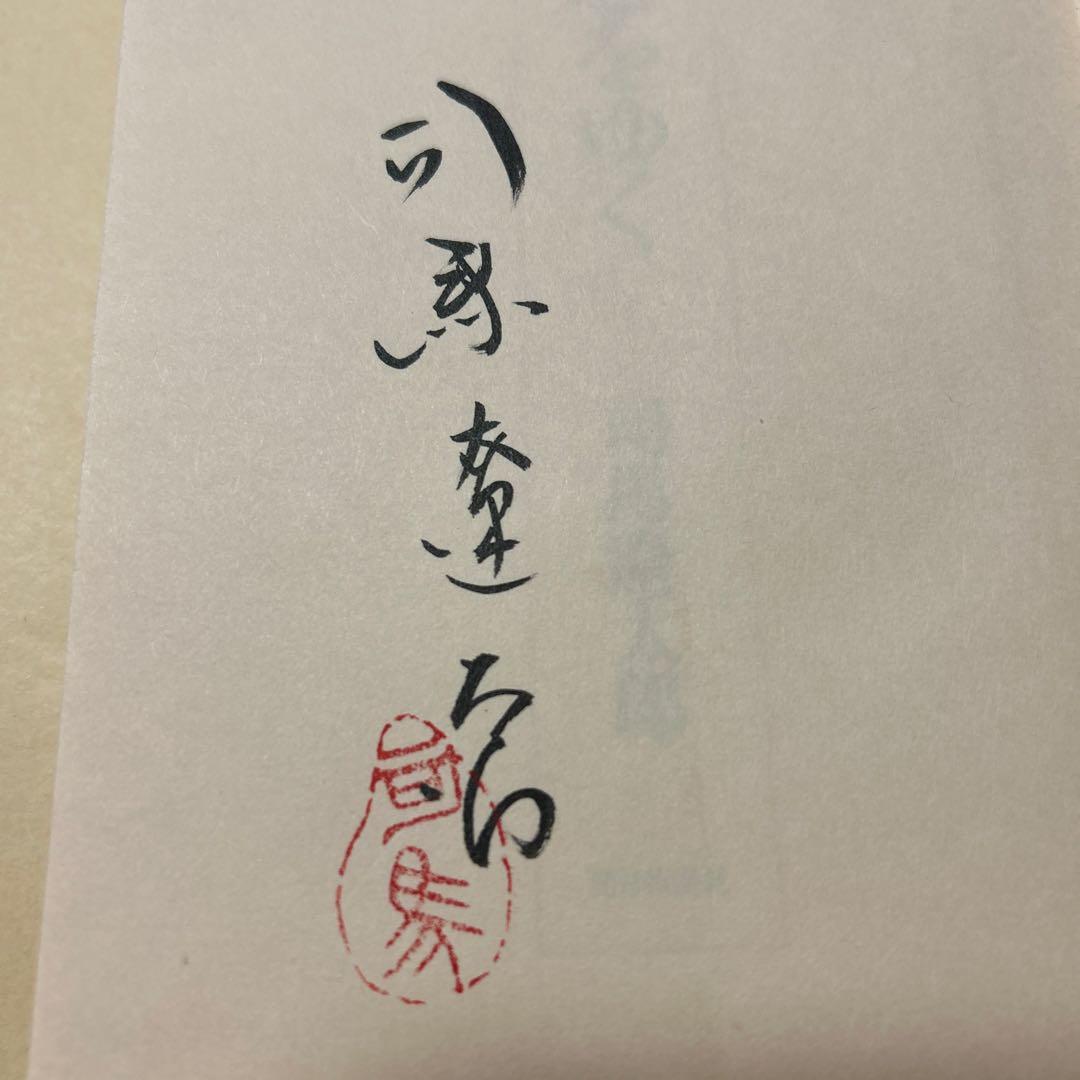 司馬遼太郎
司馬